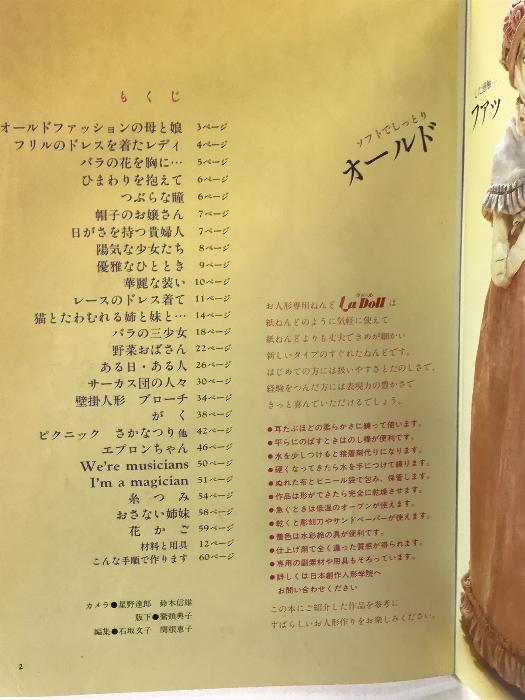 もくじ
オールドファッションの母と娘 3ページ
フリルのドレスを着たレディ 4ページ
バラの花を胸に… 5ページ
ひまわりを抱えて 6ページ
つぶらな瞳 6ページ
帽子のお嬢さん 7ページ
日がさを持つ貴婦人 7ページ
陽気な少女たち 8ページ
優雅なひととき 9ページ
華麗な装い 10ページ
レースのドレス着て 11ページ
猫とたわむれる姉と妹と… 14ページ
バラの三少女 18ページ
野菜おばさん 22ページ
ある日・ある人 26ページ
サーカス団の人々 30ページ
壁掛人形 ブローチ 34ページ
がく 38ページ
ピクニック さかなつり他 42ページ
エプロンちゃん 46ページ
We're musicians 50ページ
I'm a magician 51ページ
糸つみ 54ページ
おさない姉妹 58ページ
花かご 59ページ
材料と用具 12ページ
こんな手順で作ります 60ページ
カメラ●星野達郎 鈴木信雄
版下●鷲頭典子
編集●石坂文子 関根恵子
2
ソフトでしっとり
オールド
ファッ
お人形専用ねんど La Doll は
紙ねんどのように気軽に使えて
紙ねんどよりも丈夫できめが細かい
新しいタイプのすぐれたねんどです。
はじめての方には扱いやすさとたのしさで、
経験をつんだ方には表現力の豊かさで
きっと喜んでいただけるでしょう。
●耳たぶほどの柔らかさに練って使います。
●平らにのばすときはのし棒が便利です。
●水を少しつけると接着剤代りになります。
●硬くなってきたら水を手につけて練ります。
●ぬれた布とビニール袋で包み、保管します。
●作品は形ができたら完全に乾燥させます。
●急ぐときは低温のオーブンが使えます。
●乾くと彫刻刀やサンドペーパーが使えます。
●着色は水彩絵の具が便利です。
●仕上げ剤で全く違った質感が得られます。
●専用の副素材や用具もそろっています。
●詳しくは日本創作人形学院へ
お問い合わせください
この本にご紹介した作品を参考に
すばらしいお人形作りをお楽しみください。